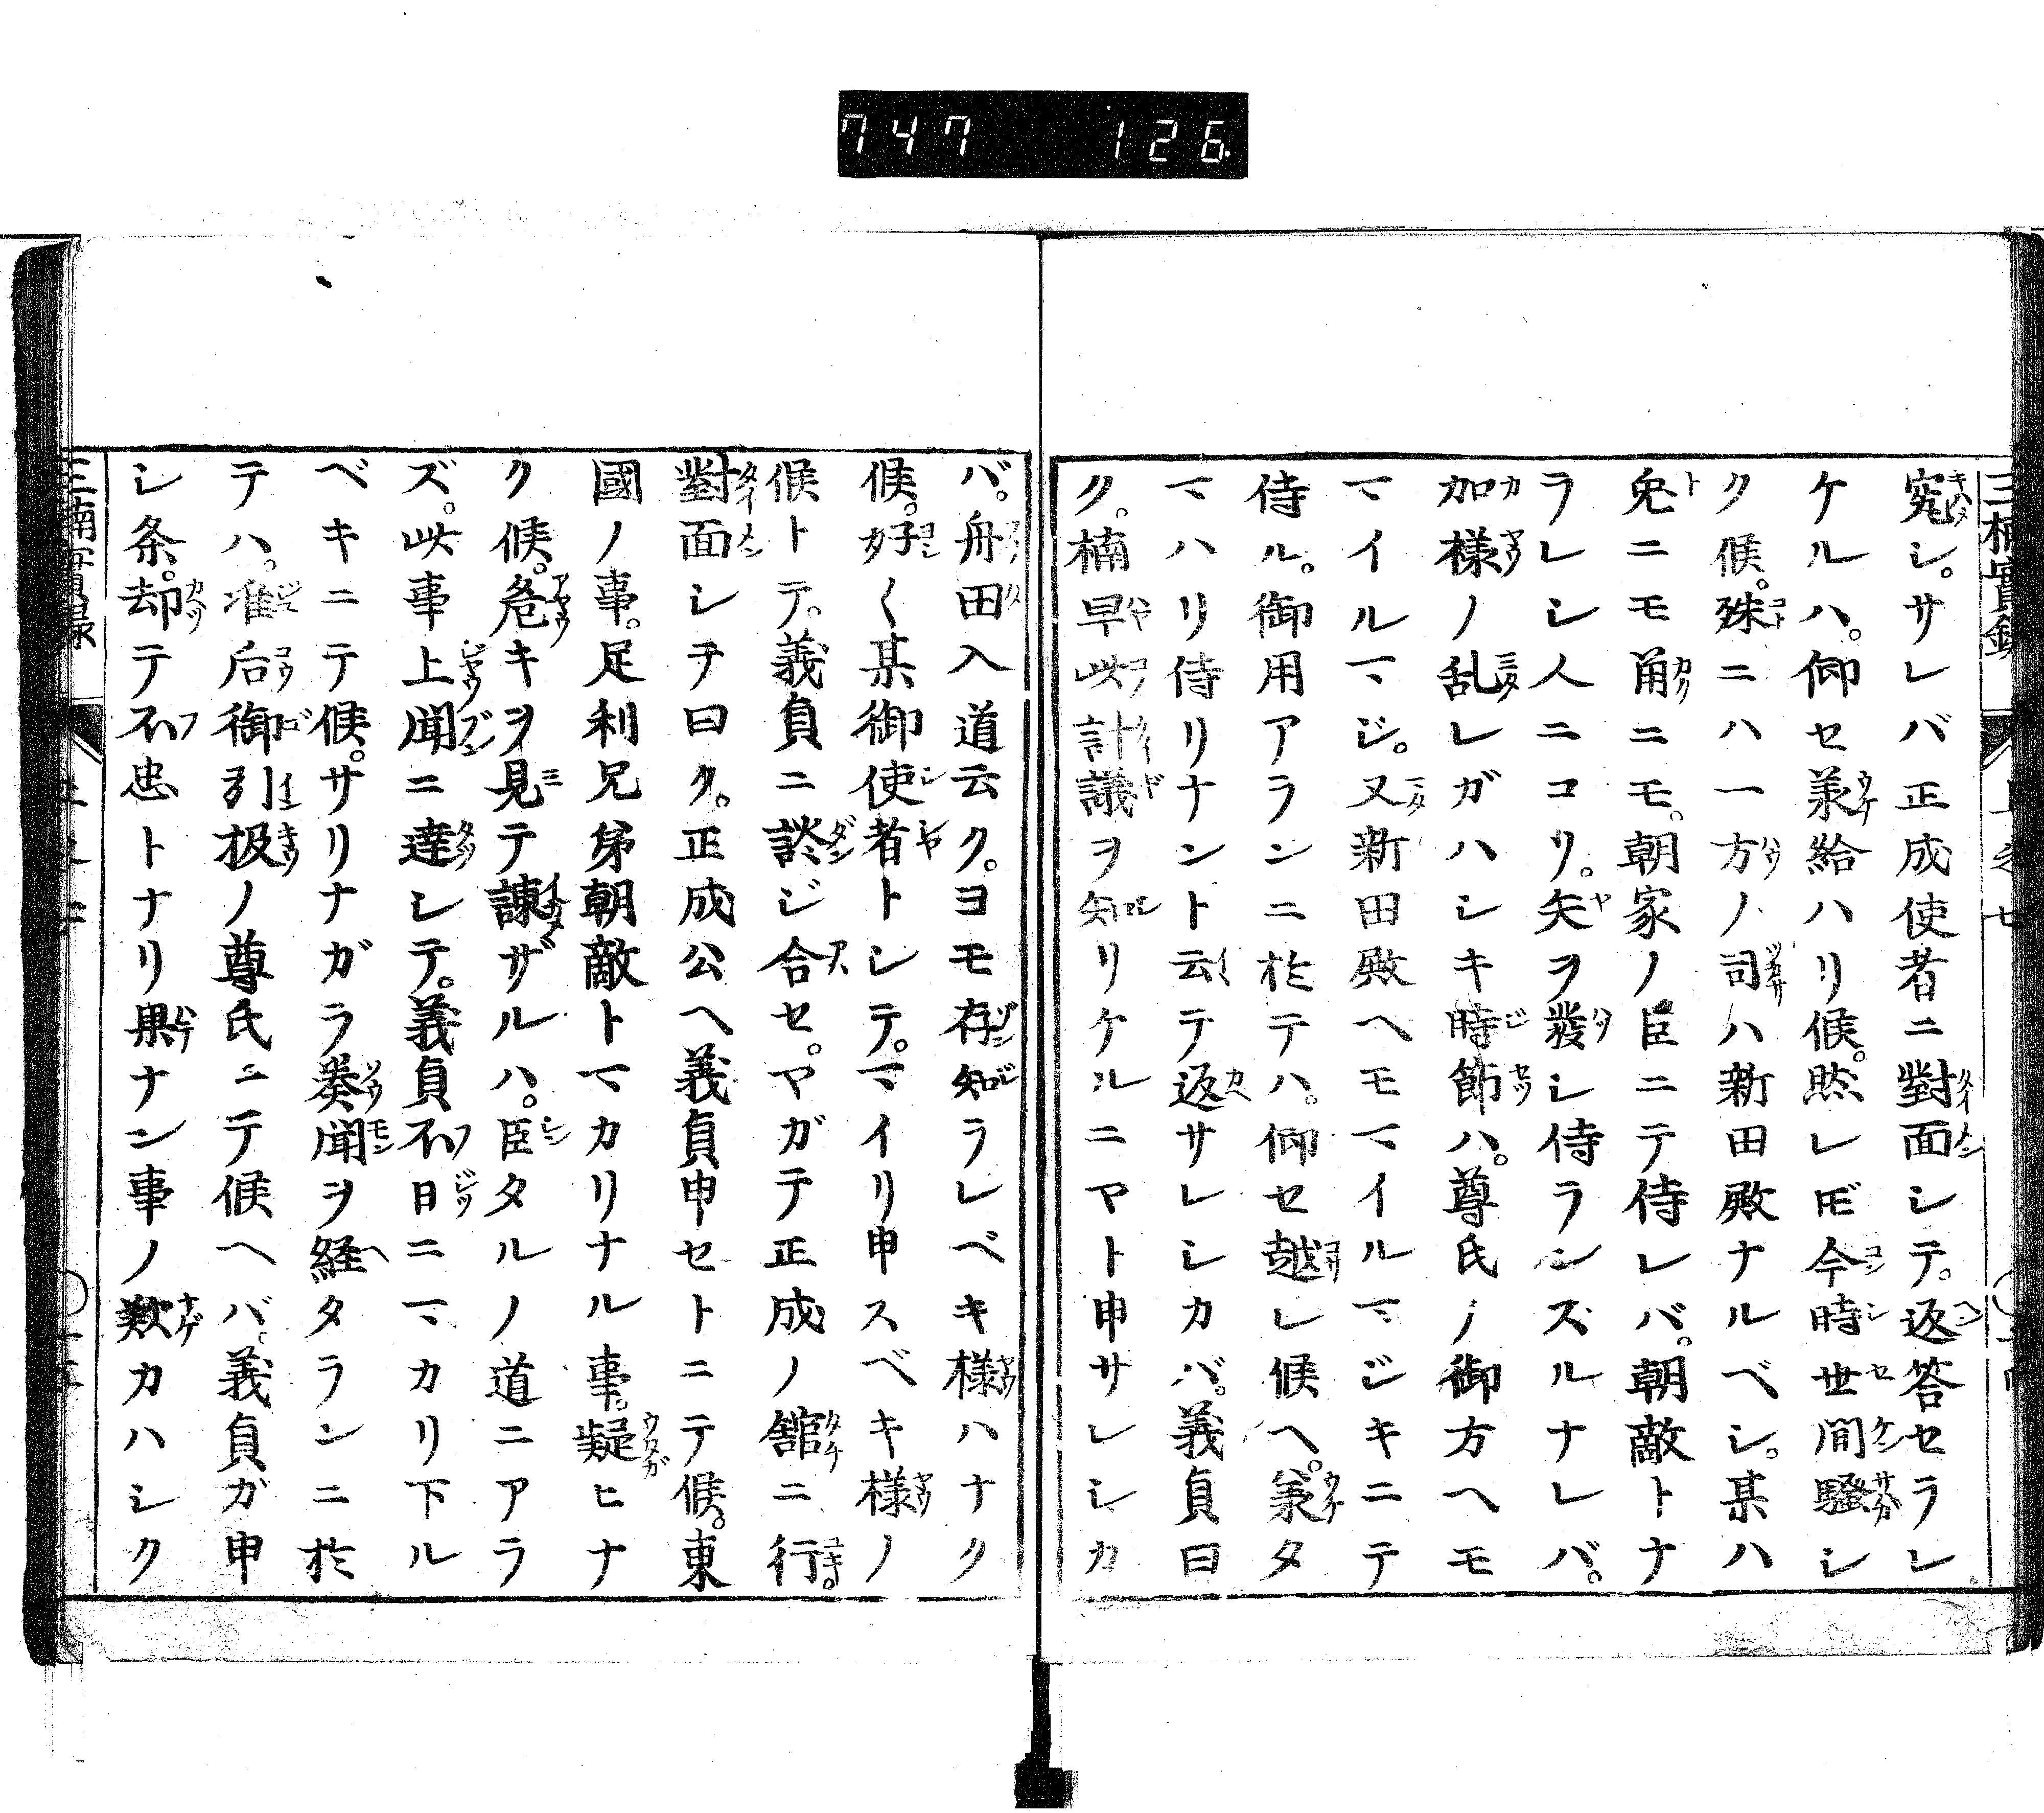 747 126
三楠實録
究シ。サレバ正成使者ニ對面シテ。返答セラレ
ケルハ。仰セ羕給ハリ候。然レ𪜈今時世間騒シ
ク候。殊ニハ一方ノ司ハ新田殿ナルベシ。某ハ
兎ニモ角ニモ。朝家ノ臣ニテ侍レバ。朝敵トナ
ラレシ人ニコリ。矢ヲ發シ侍ランズルナレバ。
加様ノ乱レガハシキ時節ハ。尊氏ノ御方ヘモ
マイルマジ。又新田殿ヘモマイルマジキニテ
侍ル。御用アランニ於テハ。仰セ越レ候ヘ。羕タ
マハリ侍リナント云テ返サレシカバ。義貞曰
ク。楠早此計議ヲ知リケルニヤト申サレシカ
バ。舟田入道云ク。ヨモ存知ラレベキ様ハナク
候。好〱某御使者トシテ。マイリ申スベキ様ノ
候トテ。義貞ニ談ジ合セ。ヤガテ正成ノ舘ニ行。
對面シテ曰ク。正成公ヘ義貞申セトニテ候。東
國ノ事。足利兄弟朝敵トマカリナル事。疑ヒナ
ク候。危キヲ見テ諫ザルハ。臣タルノ道ニアラ
ズ。此事上聞ニ達シテ。義貞不日ニマカリ下ル
ベキニテ候。サリナガラ奏聞ヲ経タランニ於
テハ。准后御引扱ノ尊氏ニテ候ヘバ。義貞ガ申
シ条。却テ不忠トナリ果ナン事ノ歎カハシク
三楠實録